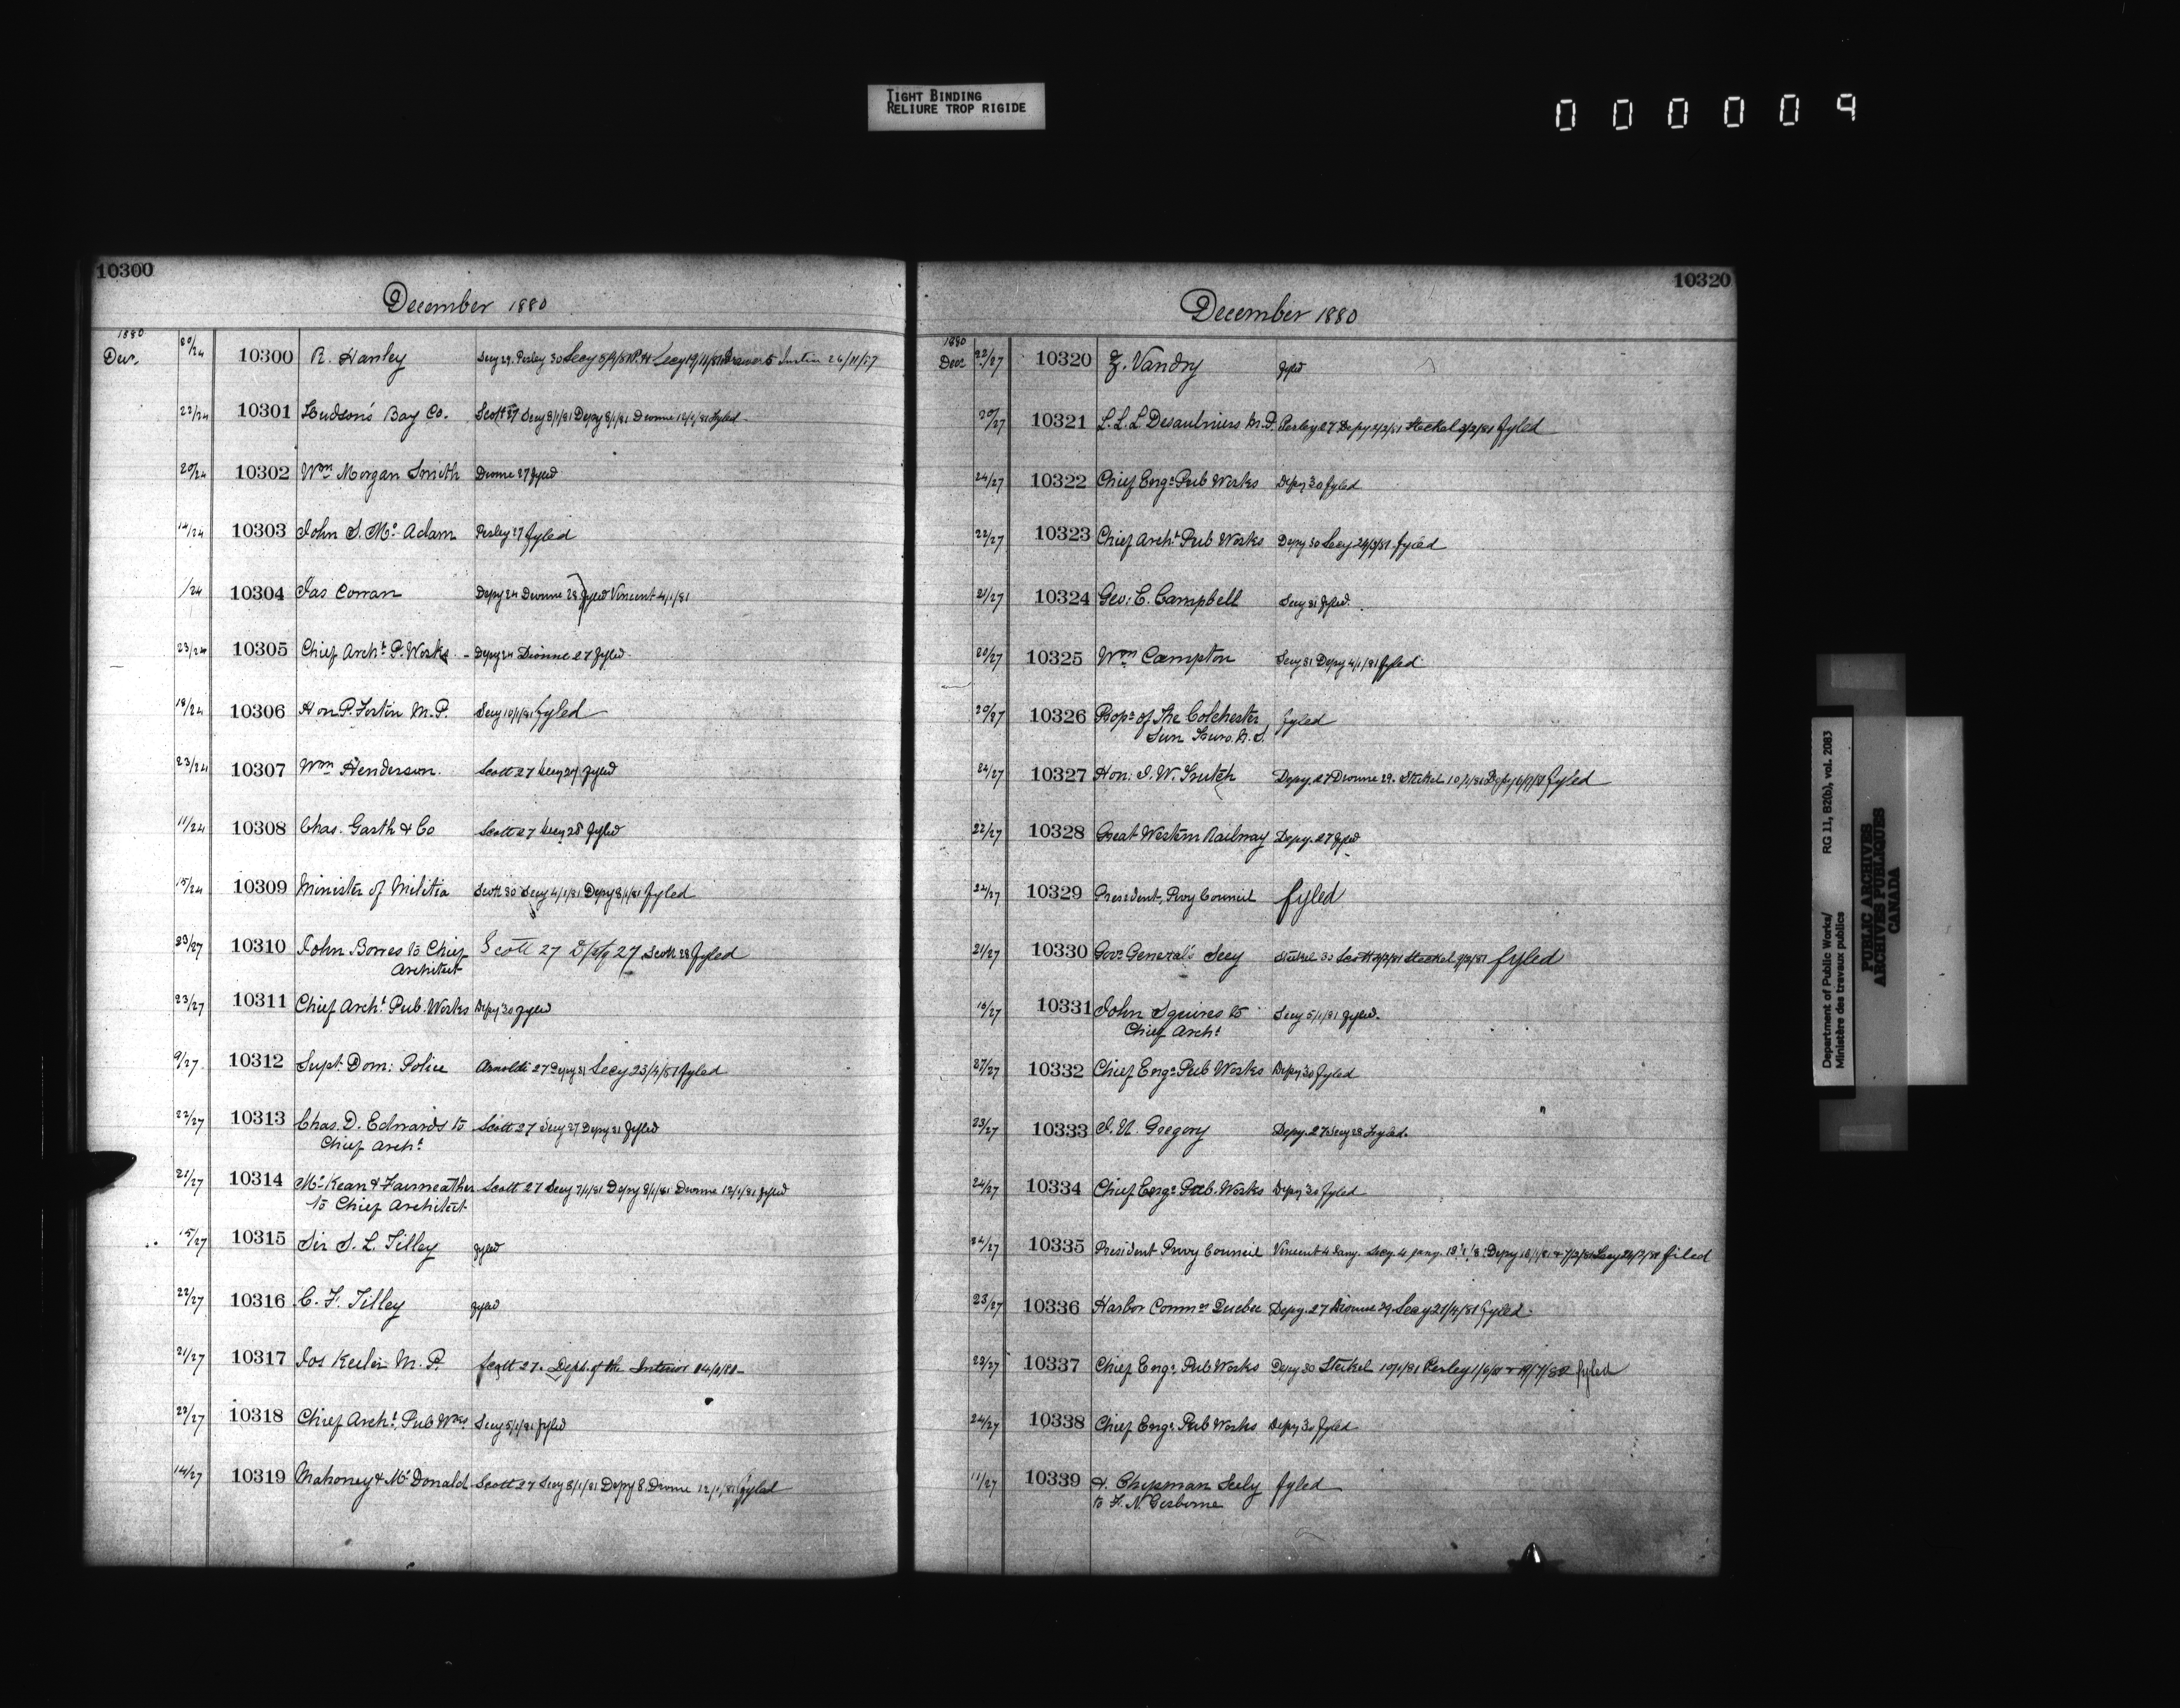 TIGHT BINDING
RELIURE TROP RIGIDE
000009
10300
December 1880
1880
Dec. 20/24 10300 R. Hanley Secy 29. Perley 30 Secy
22/24 10301 Hudson's Bay Co. Scott 27 Secy 8/1/81 Depy 8/1/81 Dionne 12/1/81 fyled
20/24 10302 Wm Morgan Smith Dionne 27 fyled
14/24 10303 John S. Mc Adam Perley 27 fyled
/24 10304 Jas Corran Depy 24 Dionne 28 fyled Vincent 4/1/81
23/24 10305 Chief Archt P. Works - Depy 24 Dionne 27 fyled
18/24 10306 Hon P. Fortin M.P. Secy 10/1/81 fyled
23/24 10307 Wm Henderson. Scott 27 Secy 29 fyled
11/24 10308 Chas. Garth & Co Scott 27 Secy 28 fyled
15/24 10309 Minister of Militia Scott 30 Secy 4/1/81 Depy 8/1/81 fyled
23/27 10310 John Bowes to Chief Scott 27 Depy 27 Scott 28 fyled
Architect
23/27 10311 Chief Archt Pub. Works Depy 30 fyled
9/27 10312 Supt Dom: Police Arnoldi 27 Depy 31 Secy 23/4/81 fyled
22/27 10313 Chas. D. Edwards to Scott 27 Secy 27 Depy 31 fyled
Chief Archt
21/27 10314 McKean & Fairweather Scott 27 Secy 7/1/81 Depy 8/1/81 Dionne 12/1/81 fyled
to Chief Architect
15/27 10315 Sir S. L. Tilley fyled
22/27 10316 C. F. Tilley fyled
21/27 10317 Jos Keeler M. P. Scott 27. Dept. of the Interior
23/27 10318 Chief Archt, Pub Wks Secy 5/1/81 fyled
14/27 10319 Mahoney & McDonald Scott 27 Secy 8/1/81 Depy 8. Dionne 12/1/81 fyled
10320
December 1880
1880
Dec 22/27 10320 Z. Vandry fyled
20/27 10321 L. L. L Desaulniers M.P. Perley 27 Depy 2/2/81 Steckel 3/2/81 fyled
24/27 10322 Chief Engr Pub Works Depy 30 fyled
22/27 10323 Chief Archt Pub Works Depy 30 Secy 29/3/81 fyled
21/27 10324 Geo: C. Campbell Secy 31 fyled.
20/27 10325 Wm Campton Secy 31 Depy 4/1/81 fyled
20/27 10326 Propr of The Colchester fyled
Sun Truro. N. S.
24/27 10327 Hon: J. W. Trutch Depy. 27 Dionne 29. Steckel 10/1/81 Depy fyled
22/27 10328 Great Western Railway Depy. 27 fyled
22/27 10329 President, Privy Council fyled
21/27 10330 Govr General's Secy Steckel 30 Scott Steckel fyled
13/27 10331 John Squires to Secy 5/1/81 fyled.
Chief Archt
27/27 10332 Chief Engr Pub Works Depy 30 fyled
23/27 10333 J. U. Gregory Depy. 27 Secy 28 fyled.
24/27 10334 Chief Engr Pub. Works Depy 30 fyled
24/27 10335 President Privy Council Vincent 4 Jany. Secy. 4 Jany. Depy filed
23/27 10336 Harbor Commrs Quebec Depy. 27 Dionne 29 Secy 21/4/81 fyled.
23/27 10337 Chief Engr, Pub Works Depy 30 Steckel 10/1/81 Perley fyled
24/27 10338 Chief Engr, Pub Works Depy 30 fyled
11/27 10339 H. Chipman Seely fyled
to F. N. Gisborne
Department of Public Works/ RG 11, B2(b), vol. 2083
Ministère des travaux publics
PUBLIC ARCHIVES
ARCHIVES PUBLIQUES
CANADA